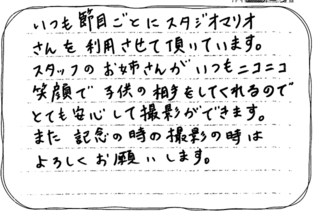 いつも節目ごとにスタジオマリオ
さんを利用させて頂いています。
スタッフのお姉さんがいつもニコニコ
笑顔で子供の相手をしてくれるので
とても安心して撮影ができます。
また記念の時の撮影の時は
よろしくお願いします。